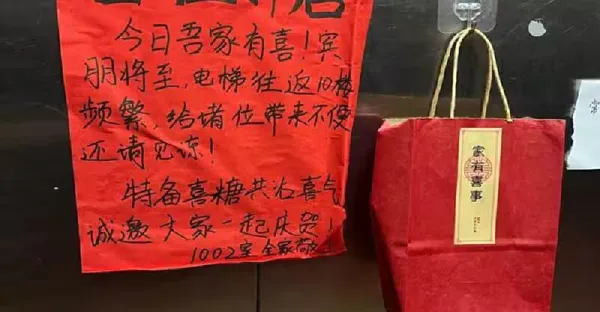 今日吾家有喜！宾
朋将至，电梯往返10楼
频繁，给堵位带来不便
还请见谅！
特备喜糖共沾喜气
诚邀大家一起庆贺！
1002室 全家敬
家有喜事